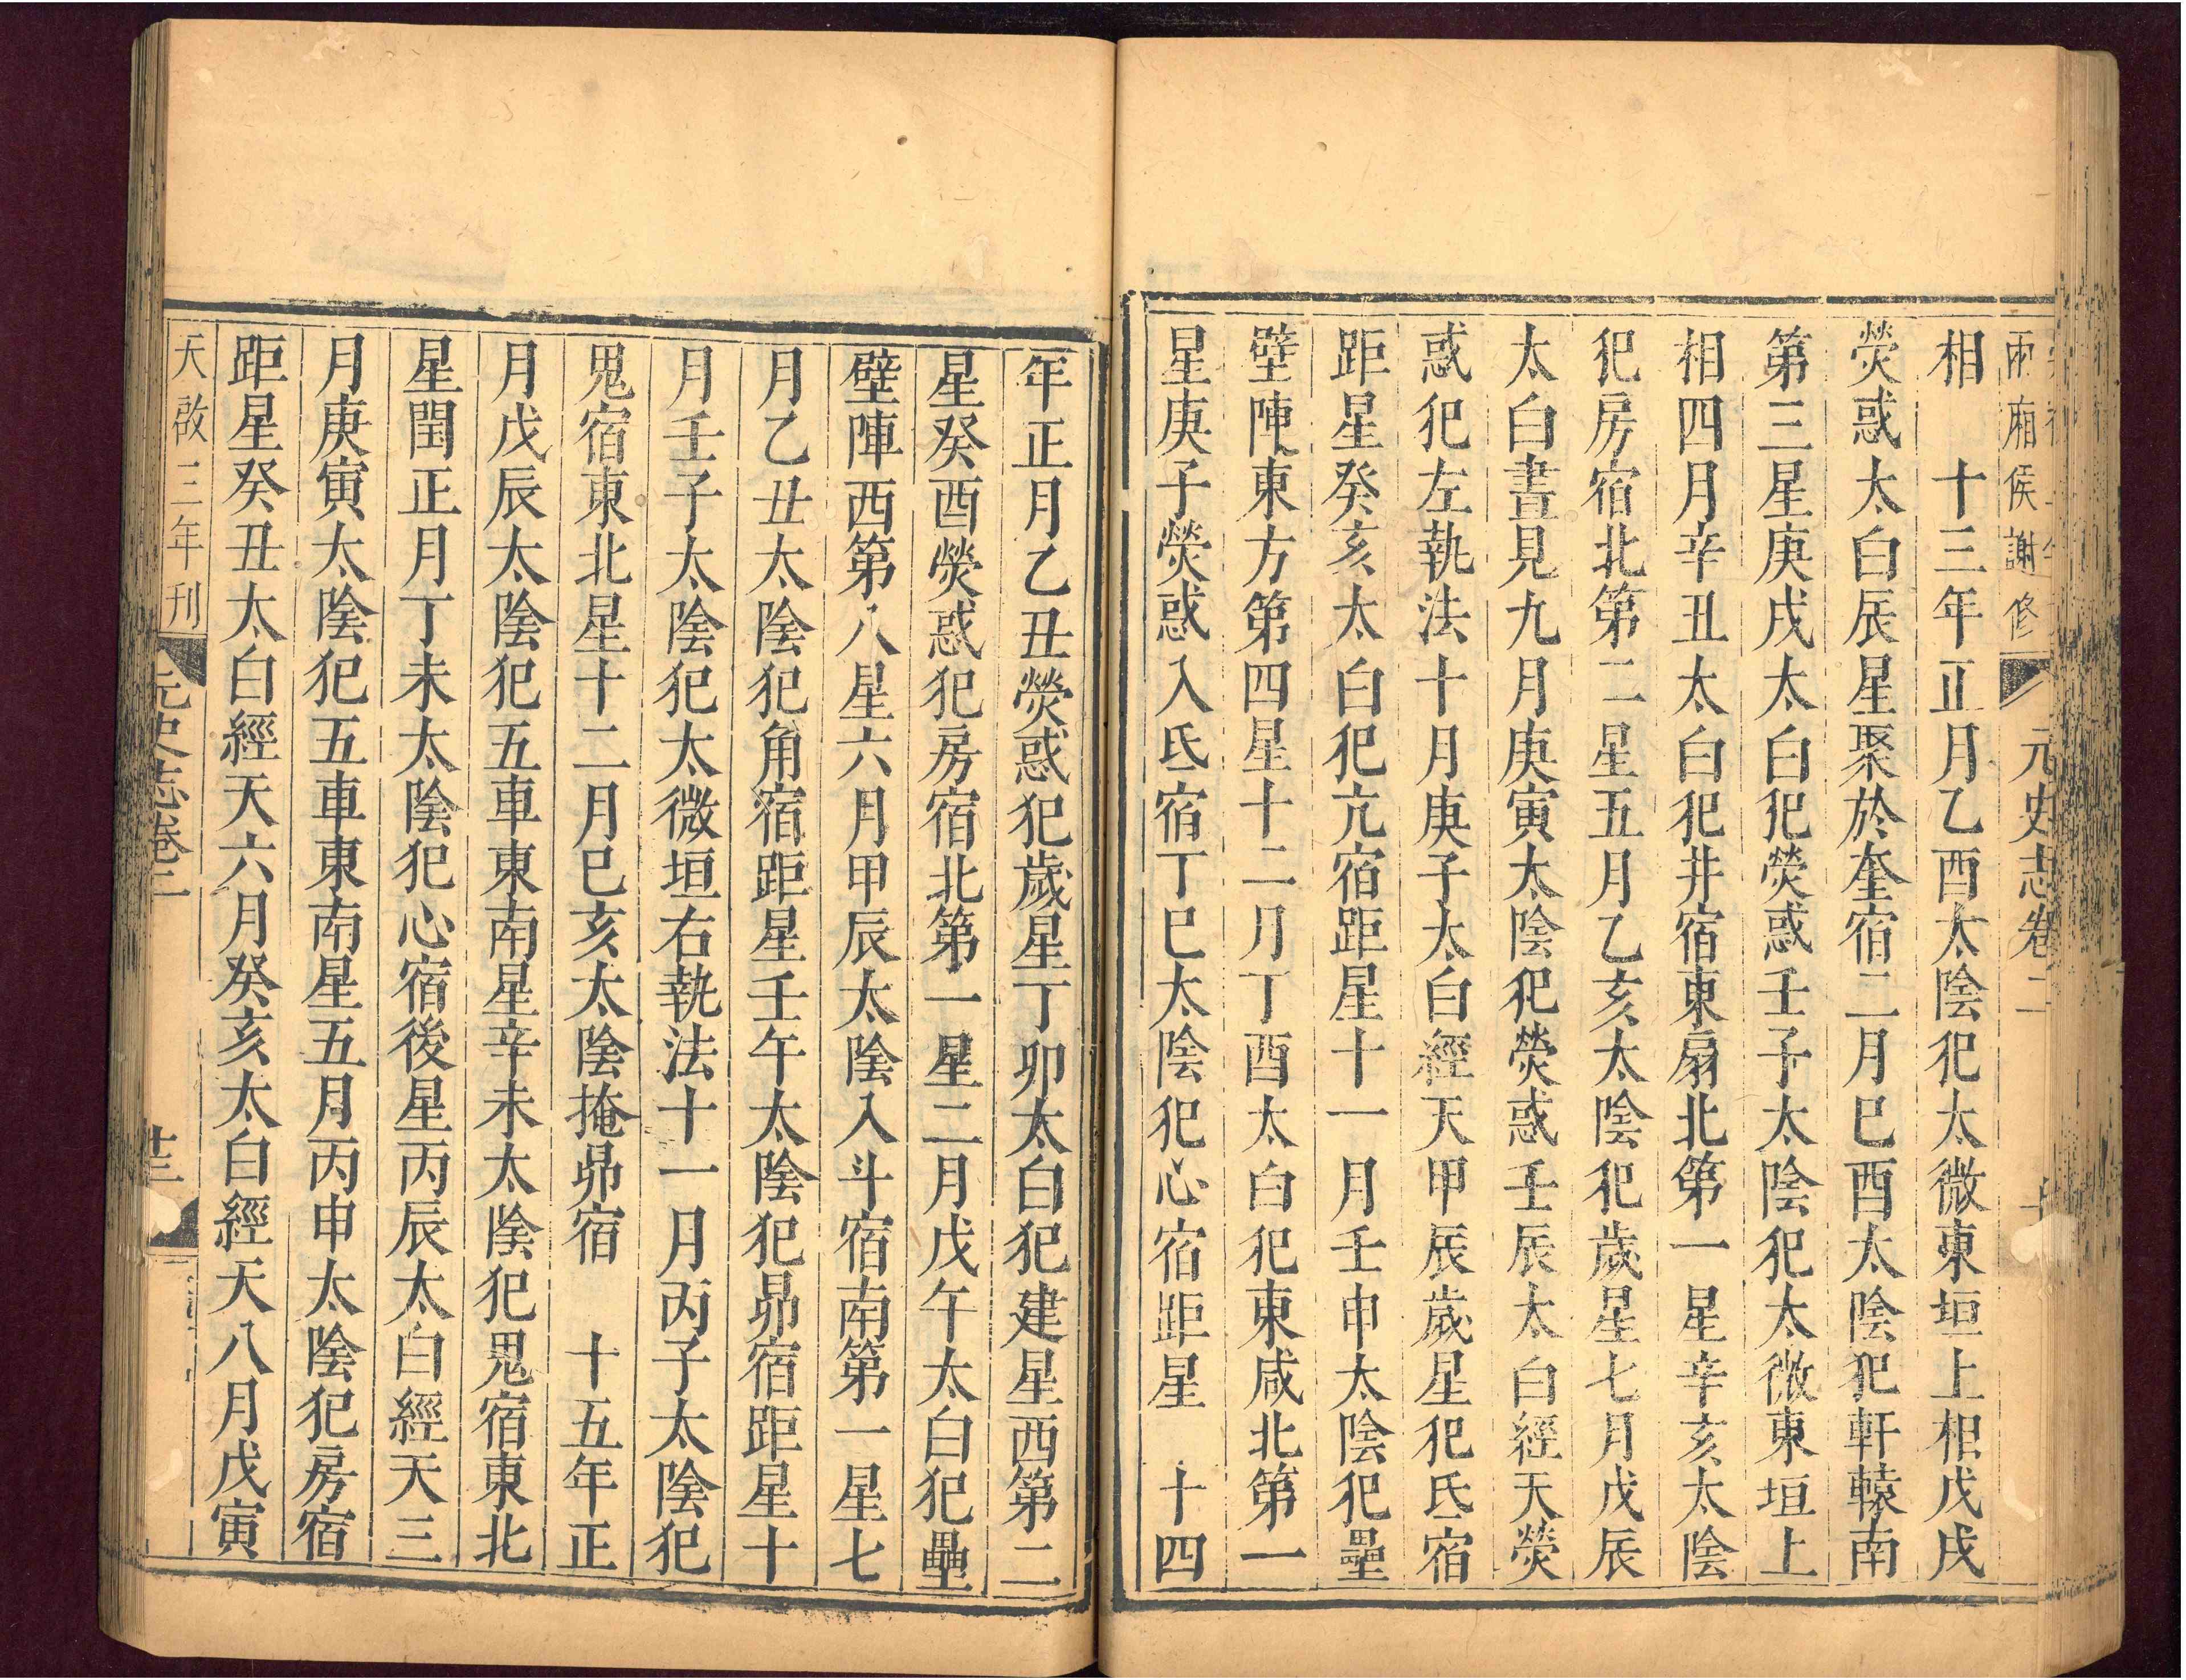 兩廂侯謝修 元史志卷二
相　十三年正月乙酉太陰犯太微東垣上相戊戌
熒惑太白辰星聚於奎宿二月巳酉太陰犯軒轅南
第三星庚戌太白犯熒惑壬子太陰犯太微東垣上
相四月辛丑太白犯井宿東扇北第一星辛亥太陰
犯房宿北第二星五月乙亥太陰犯歲星七月戊辰
太白晝見九月庚寅太陰犯熒惑壬辰太白經天熒
惑犯左執法十月庚子太白經天甲辰歲星犯氐宿
距星癸亥太白犯亢宿距星十一月壬申太陰犯壘
壁陣東方第四星十二月丁酉太白犯東咸北第一
星庚子熒惑入氐宿丁巳太陰犯心宿距星　十四
年正月乙丑熒惑犯歲星丁卯太白犯建星西第二
星癸酉熒惑犯房宿北第一星二月戊午太白犯壘
壁陣西第八星六月甲辰太陰入斗宿南第一星七
月乙丑太陰犯角宿距星壬午太陰犯昴宿距星十
月壬子太陰犯太微垣右執法十一月丙子太陰犯
鬼宿東北星十二月巳亥太陰掩昴宿　十五年正
月戊辰太陰犯五車東南星辛未太陰犯鬼宿東北
星閏正月丁未太陰犯心宿後星丙辰太白經天三
月庚寅太陰犯五車東南星五月丙申太陰犯房宿
距星癸丑太白經天六月癸亥太白經天八月戊寅
天啟三年刊 元史志卷二